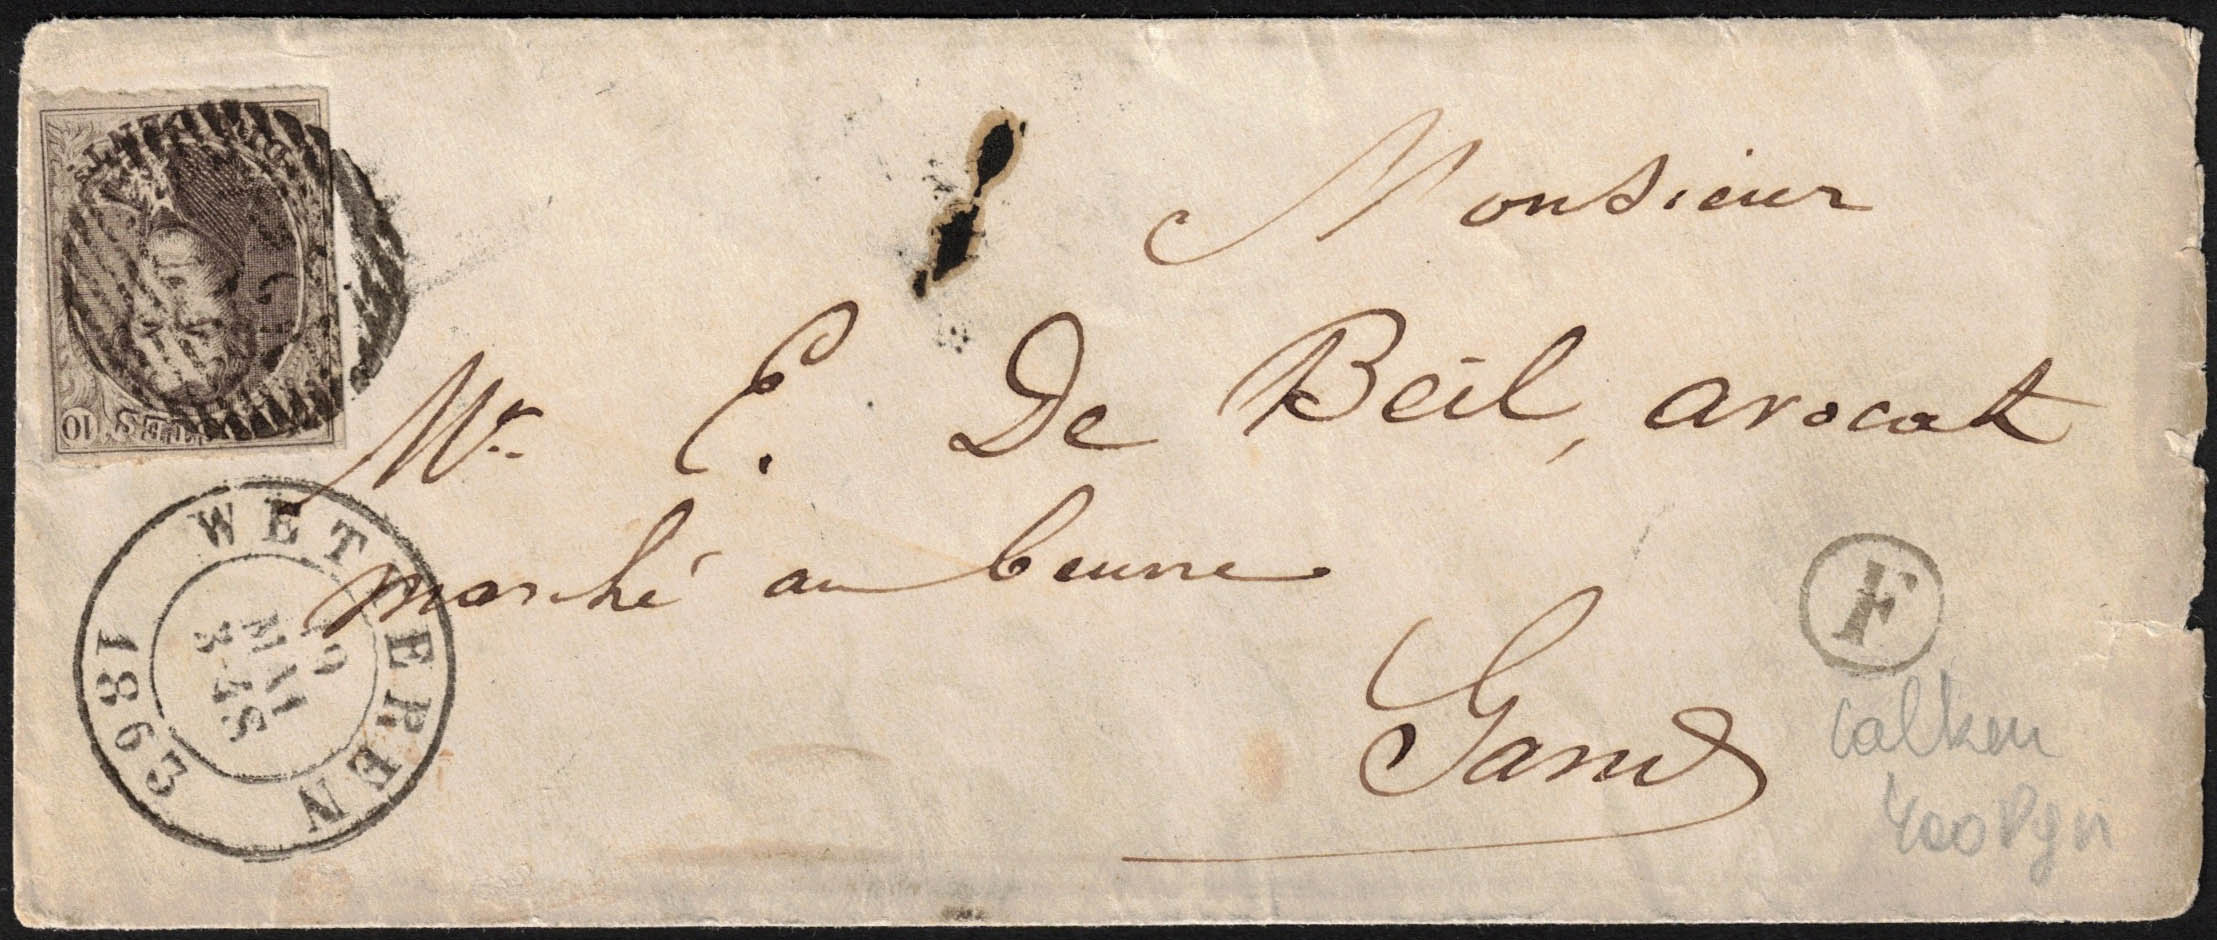 Monsieur
Mr. E. De Beil, avocat
marché au beurre
Gand
WETTEREN
19
MAI
3-4S
1863
10
F
Calken
400